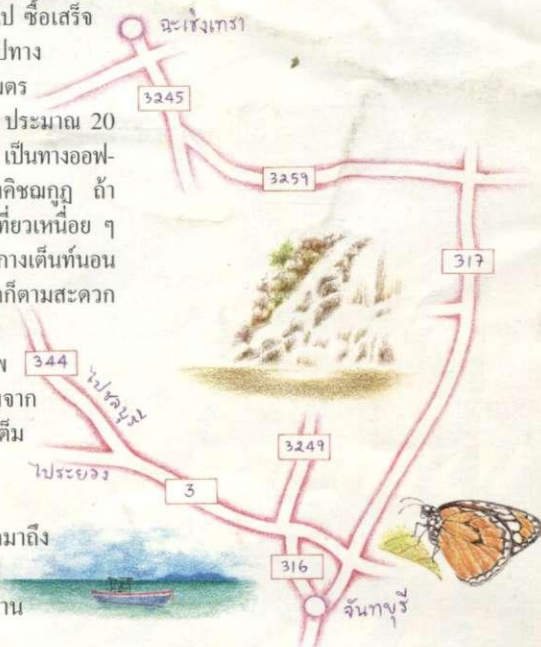 ไป ซื้อเสร็จ
ปทาง
มตร
ประมาณ 20
เป็นทางออฟ-
าคิชฌกูฏ ถ้า
ที่ยวเหนื่อย ๆ
กางเต็นท์นอน
ก็ตามสะดวก
พ
จาก
ต็ม
มาถึง
าน
ฉะเชิงเทรา
3245
3259
317
344
ไปชลบุรี
ไประยอง
3
3249
316
จันทบุรี